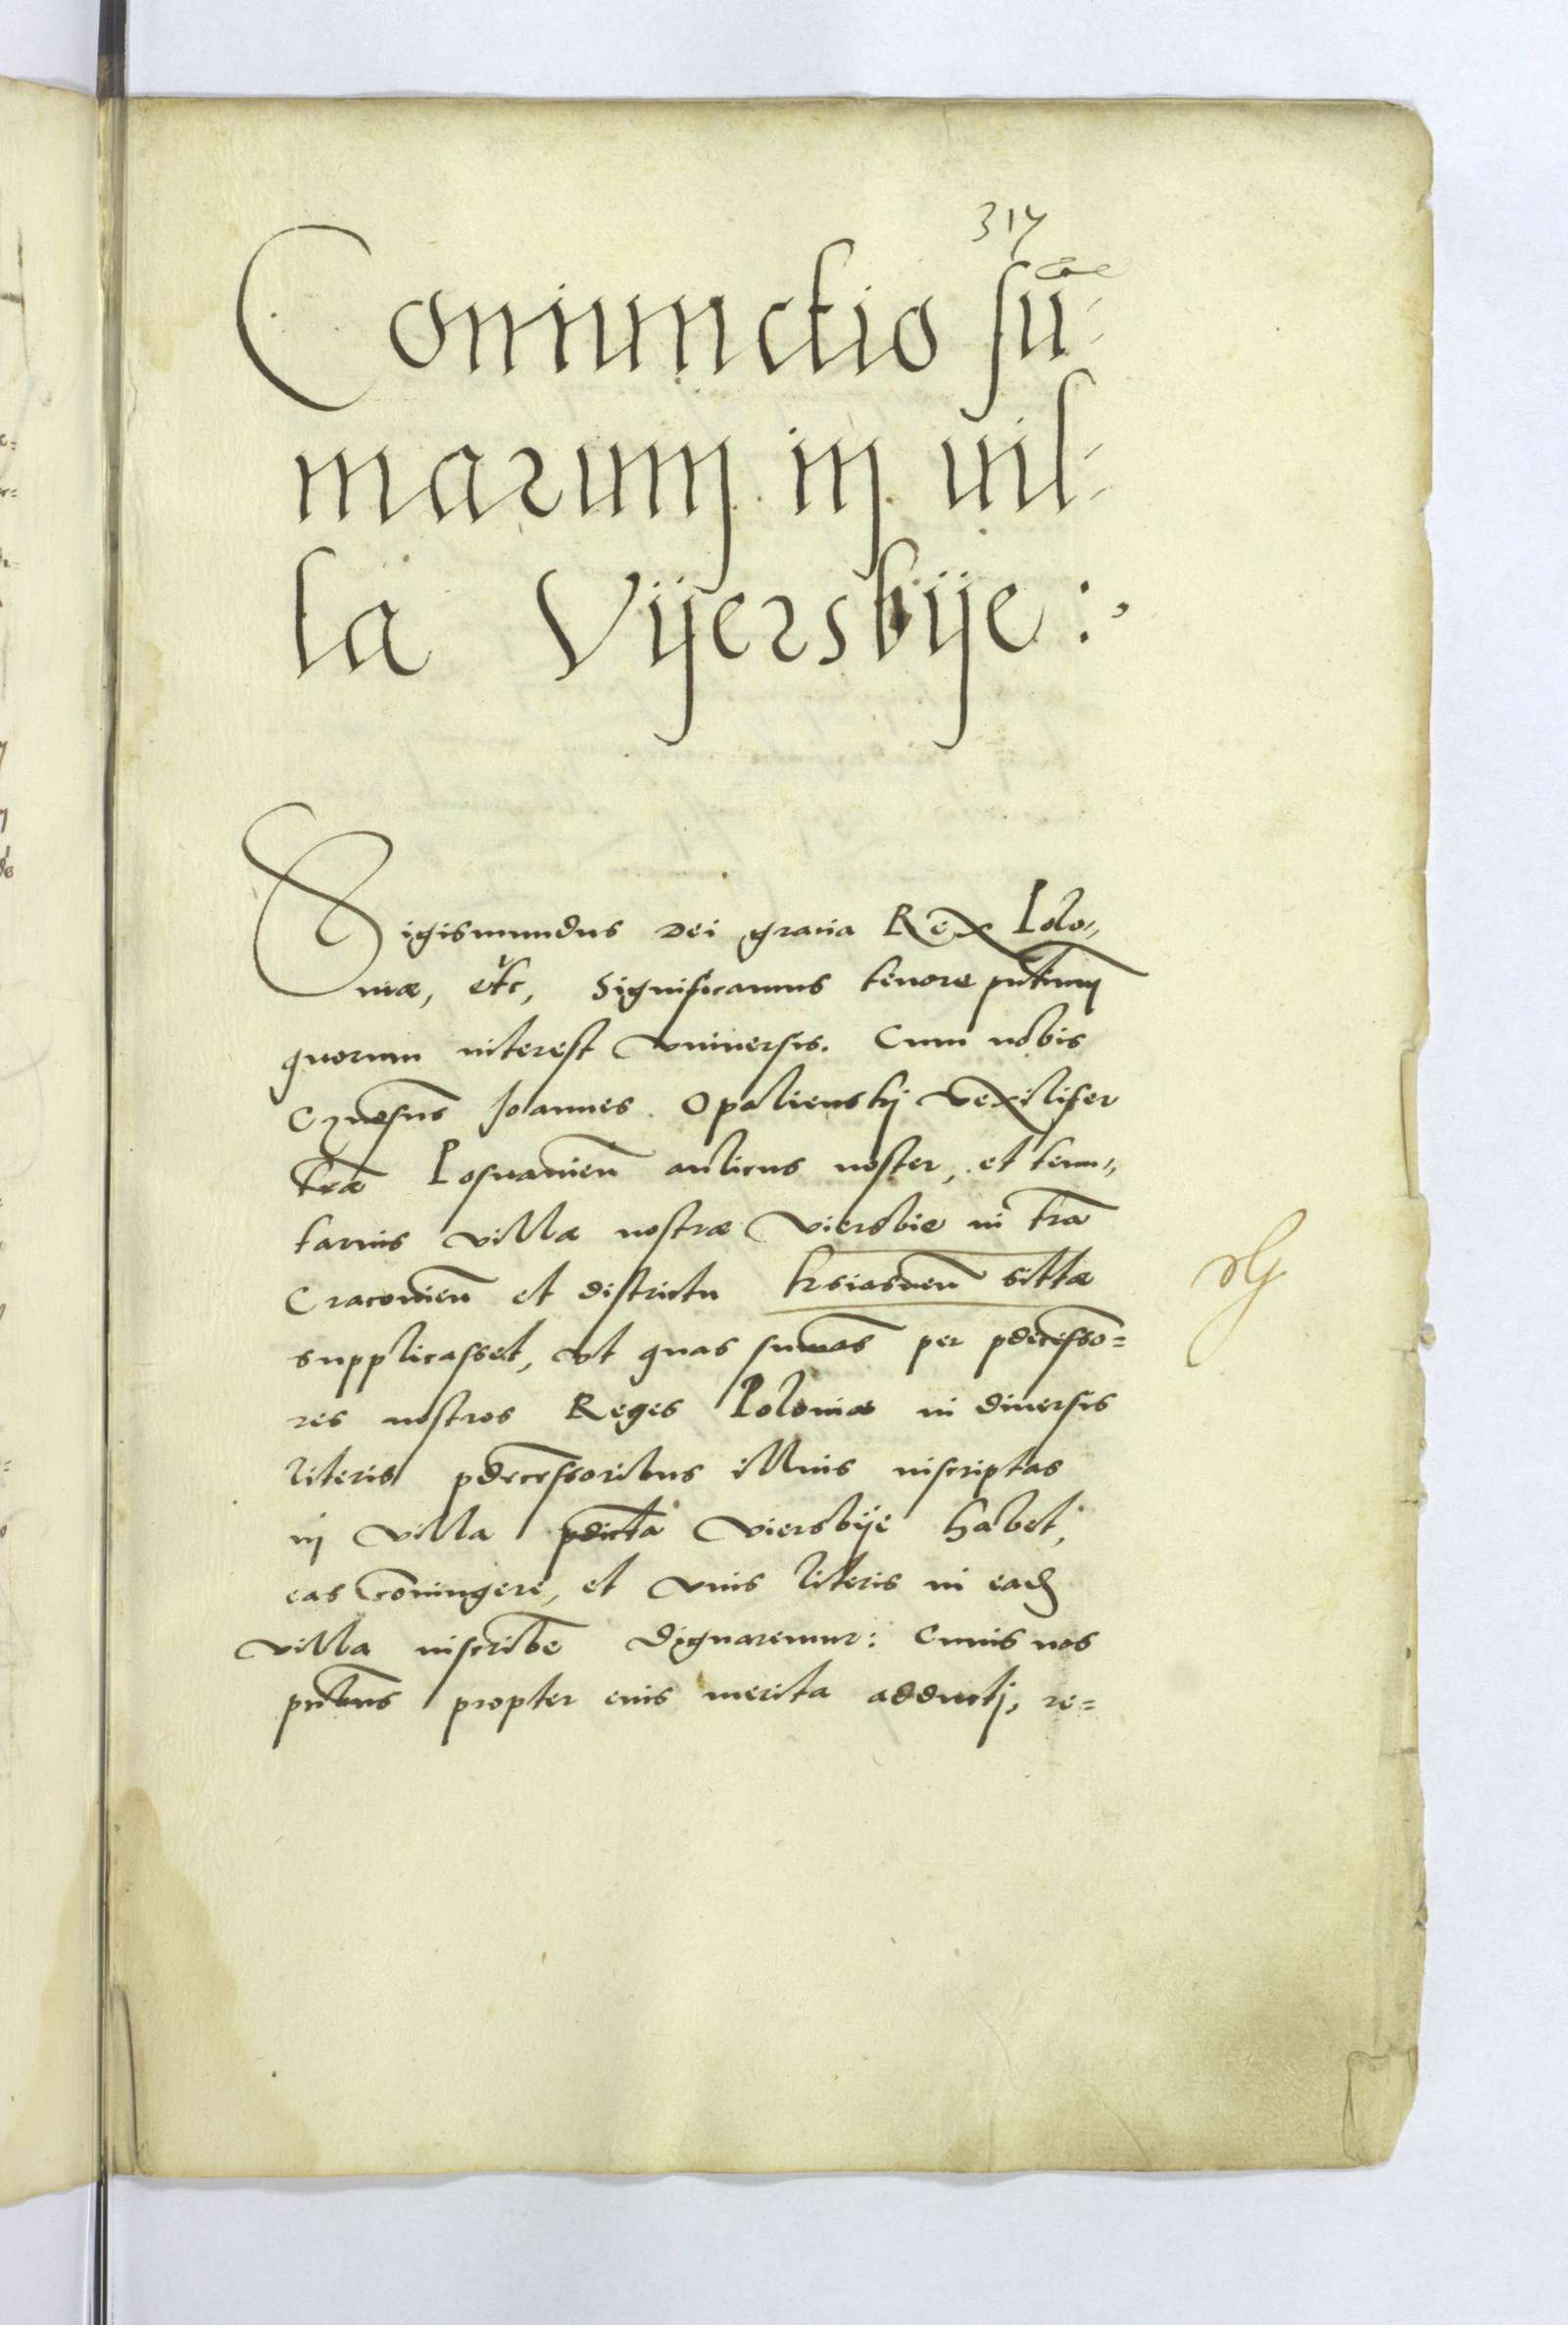 317
Coniunctio sū-
marum in uil-
la Vijersbije:
Sigismundus Dei gratia Rex Polo-
niæ, etc, Significamus tenore pntium
quorum interest vniuersis. Cum nobis
Gnosus Joannes Opalienskj vexilifer
træ Posnanien̄ aulicus noster, et tenu-
tarius villæ nostræ viersbie in tra
Cracouien̄ et districtu Ksiasnen̄ sittæ
supplicasset, vt quas sumas per pdecesso=
res nostros Reges Poloniæ in diuersis
literis pdecessoribus illius inscriptas
in villa pdicta viersbije habet,
eas coniungere, et vnis literis in ead
villa inscribe dignaremur: Cuius nos
pcibus propter eius merita adductj, re=